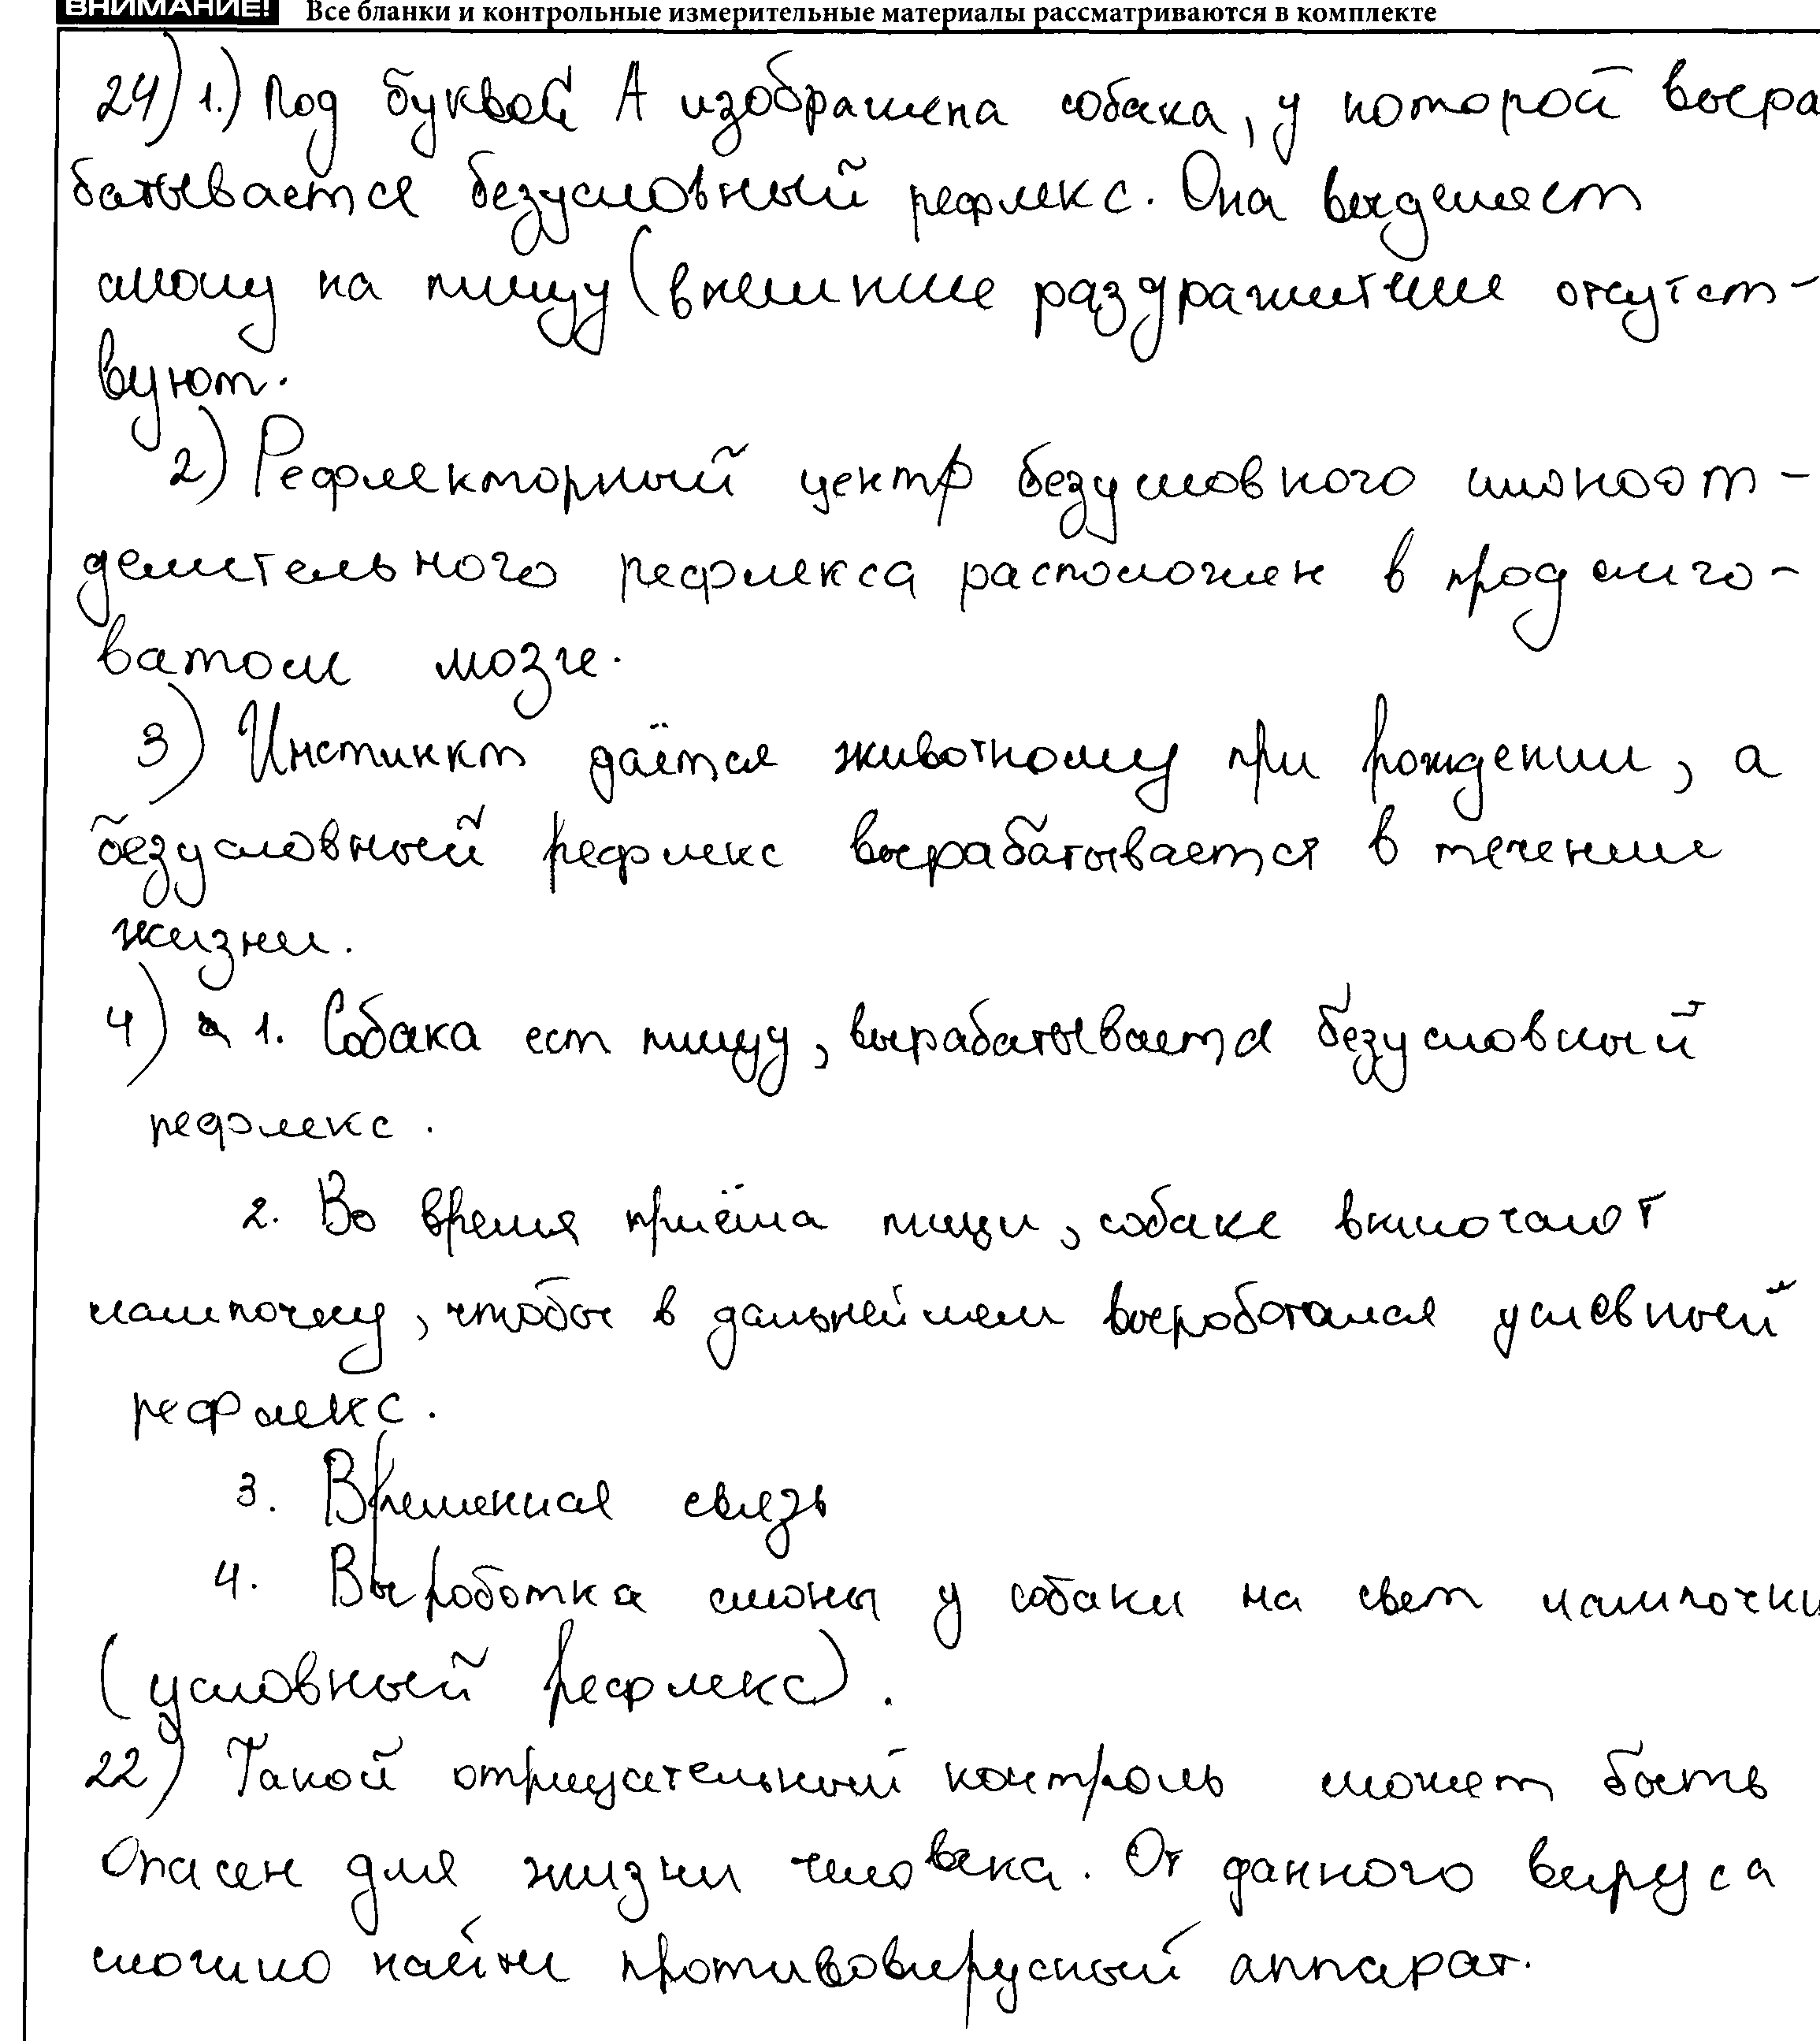 ВНИМАНИЕ! Все бланки и контрольные измерительные материалы рассматриваются в комплекте
24) 1.) Под буквой А изображена собака, у которой выра
батывается безусловный рефлекс. Она выделяет
слюну на пищу (внешние раздражители отсутст-
вуют.
2) Рефлекторный центр безусловного слюноот-
делительного рефлекса расположен в продолго-
ватом мозге.
3) Инстинкт даётся животному при рождении, а
безусловный рефлекс вырабатывается в течении
жизни.
4) 1. Собака ест пищу, вырабатывается безусловный
рефлекс.
2. Во время приёма пищи, собаке включают
лампочку, чтобы в дальнейшем выроботался условный
рефлекс.
3. Временная связь
4. Выроботка слюны у собаки на свет лампочки
(условный рефлекс).
22) Такой отрицательный контроль может быть
опасен для жизни человека. От данного вируса
можно найти противовирусный аппарат.